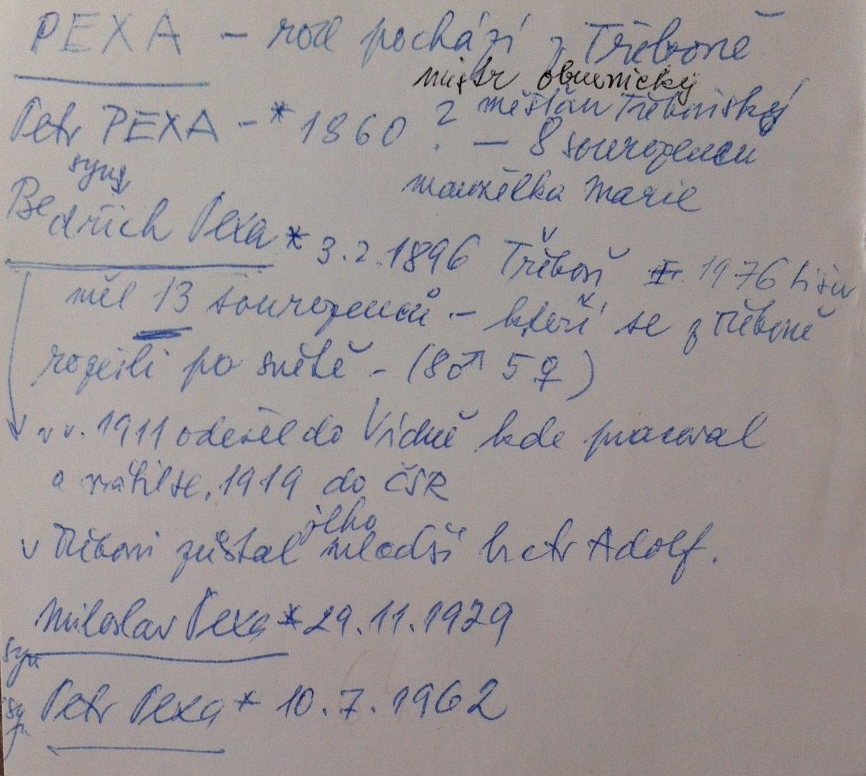 PEXA - rod pochází z Třeboně
mistr obuvnický
Petr PEXA - * 1860 ? měšťan Třeboňský
- 8 sourozenců
manželka Marie
syn
Bedřich Pexa * 3.2.1896 Třeboň 1976
měl 13 sourozenců - kteří se z Třeboně
rozešli po světě - (8♂ 5♀)
v r. 1911 odešel do Vídně kde pracoval
a vrátil se 1919 do ČSR
jeho
v Třeboni zůstal mladší bratr Adolf.
Miloslav Pexa * 29.11.1929
syn
Petr Pexa * 10.7.1962
syn